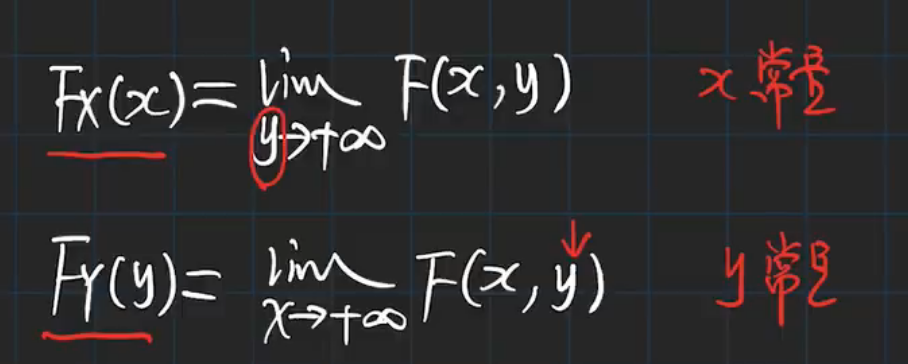 F_X(x) = lim_{y→+∞} F(x,y) x 常量
F_Y(y) = lim_{x→+∞} F(x,y) y 常量